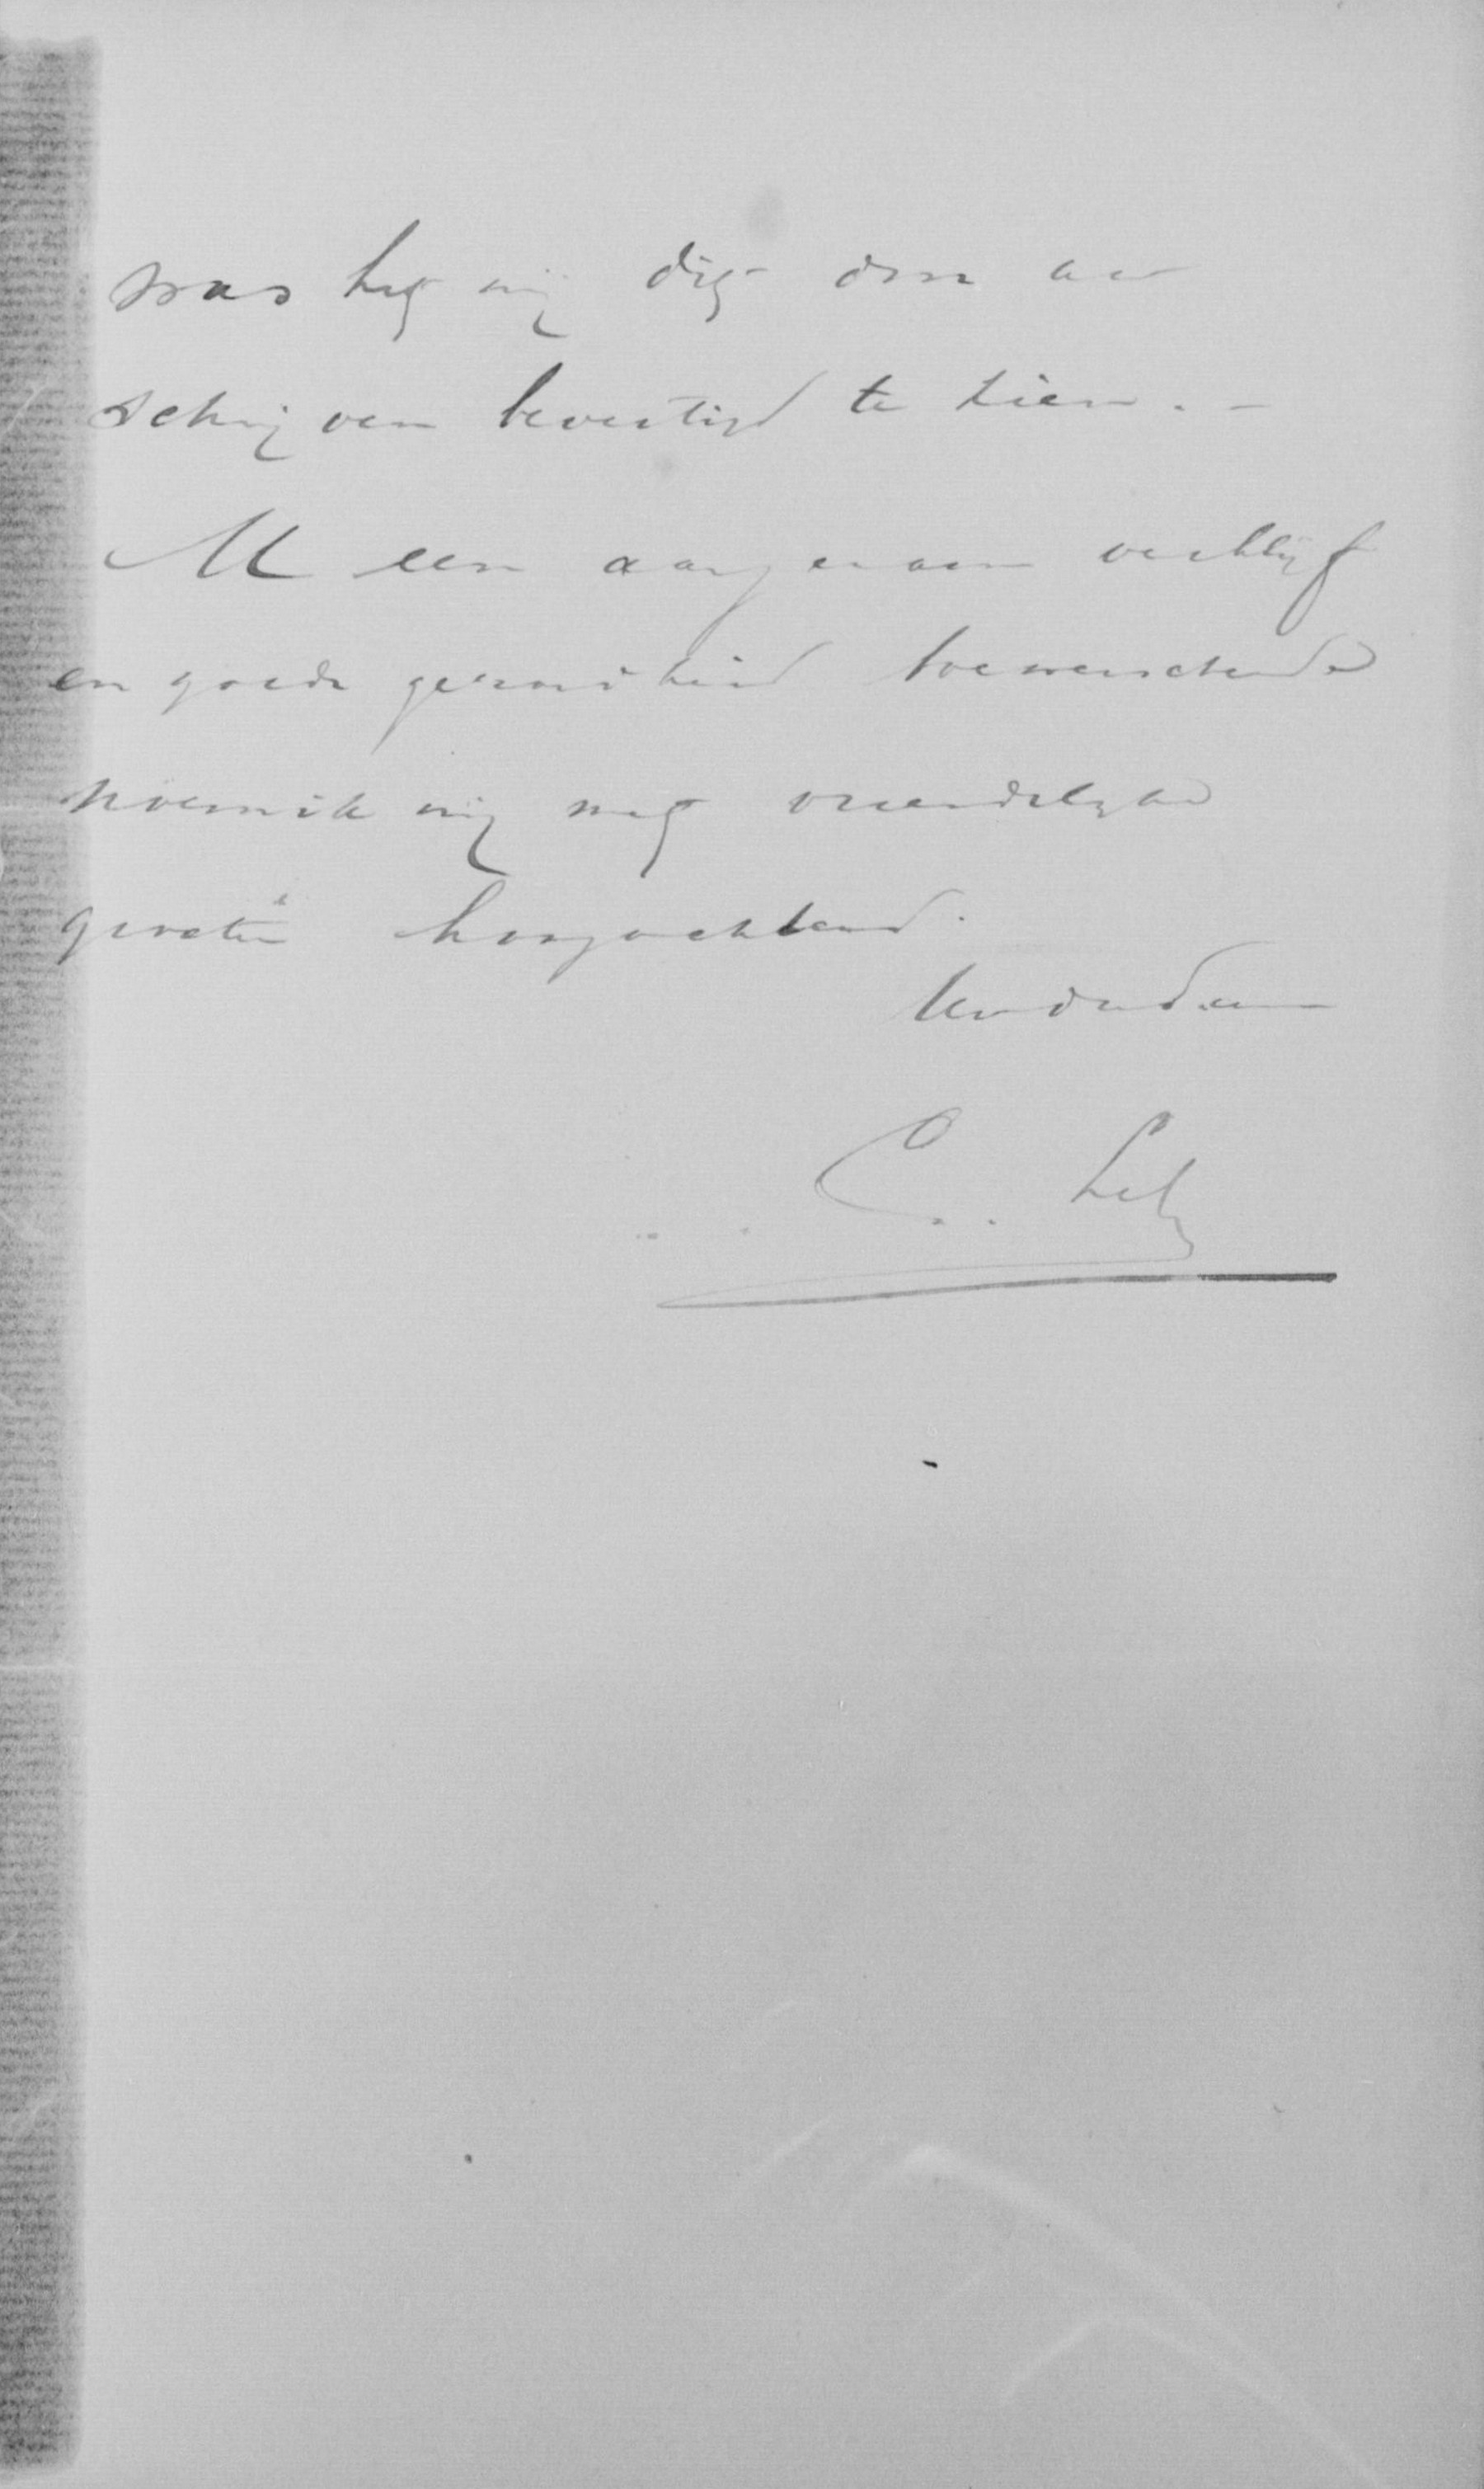 was het mij dit door uw
schrijven bevestigd te zien. -
U een aangenaam verblijf
en goede gezondheid toewenschende
noem ik mij met vriendelyke
groeten hoogachtend.
C.